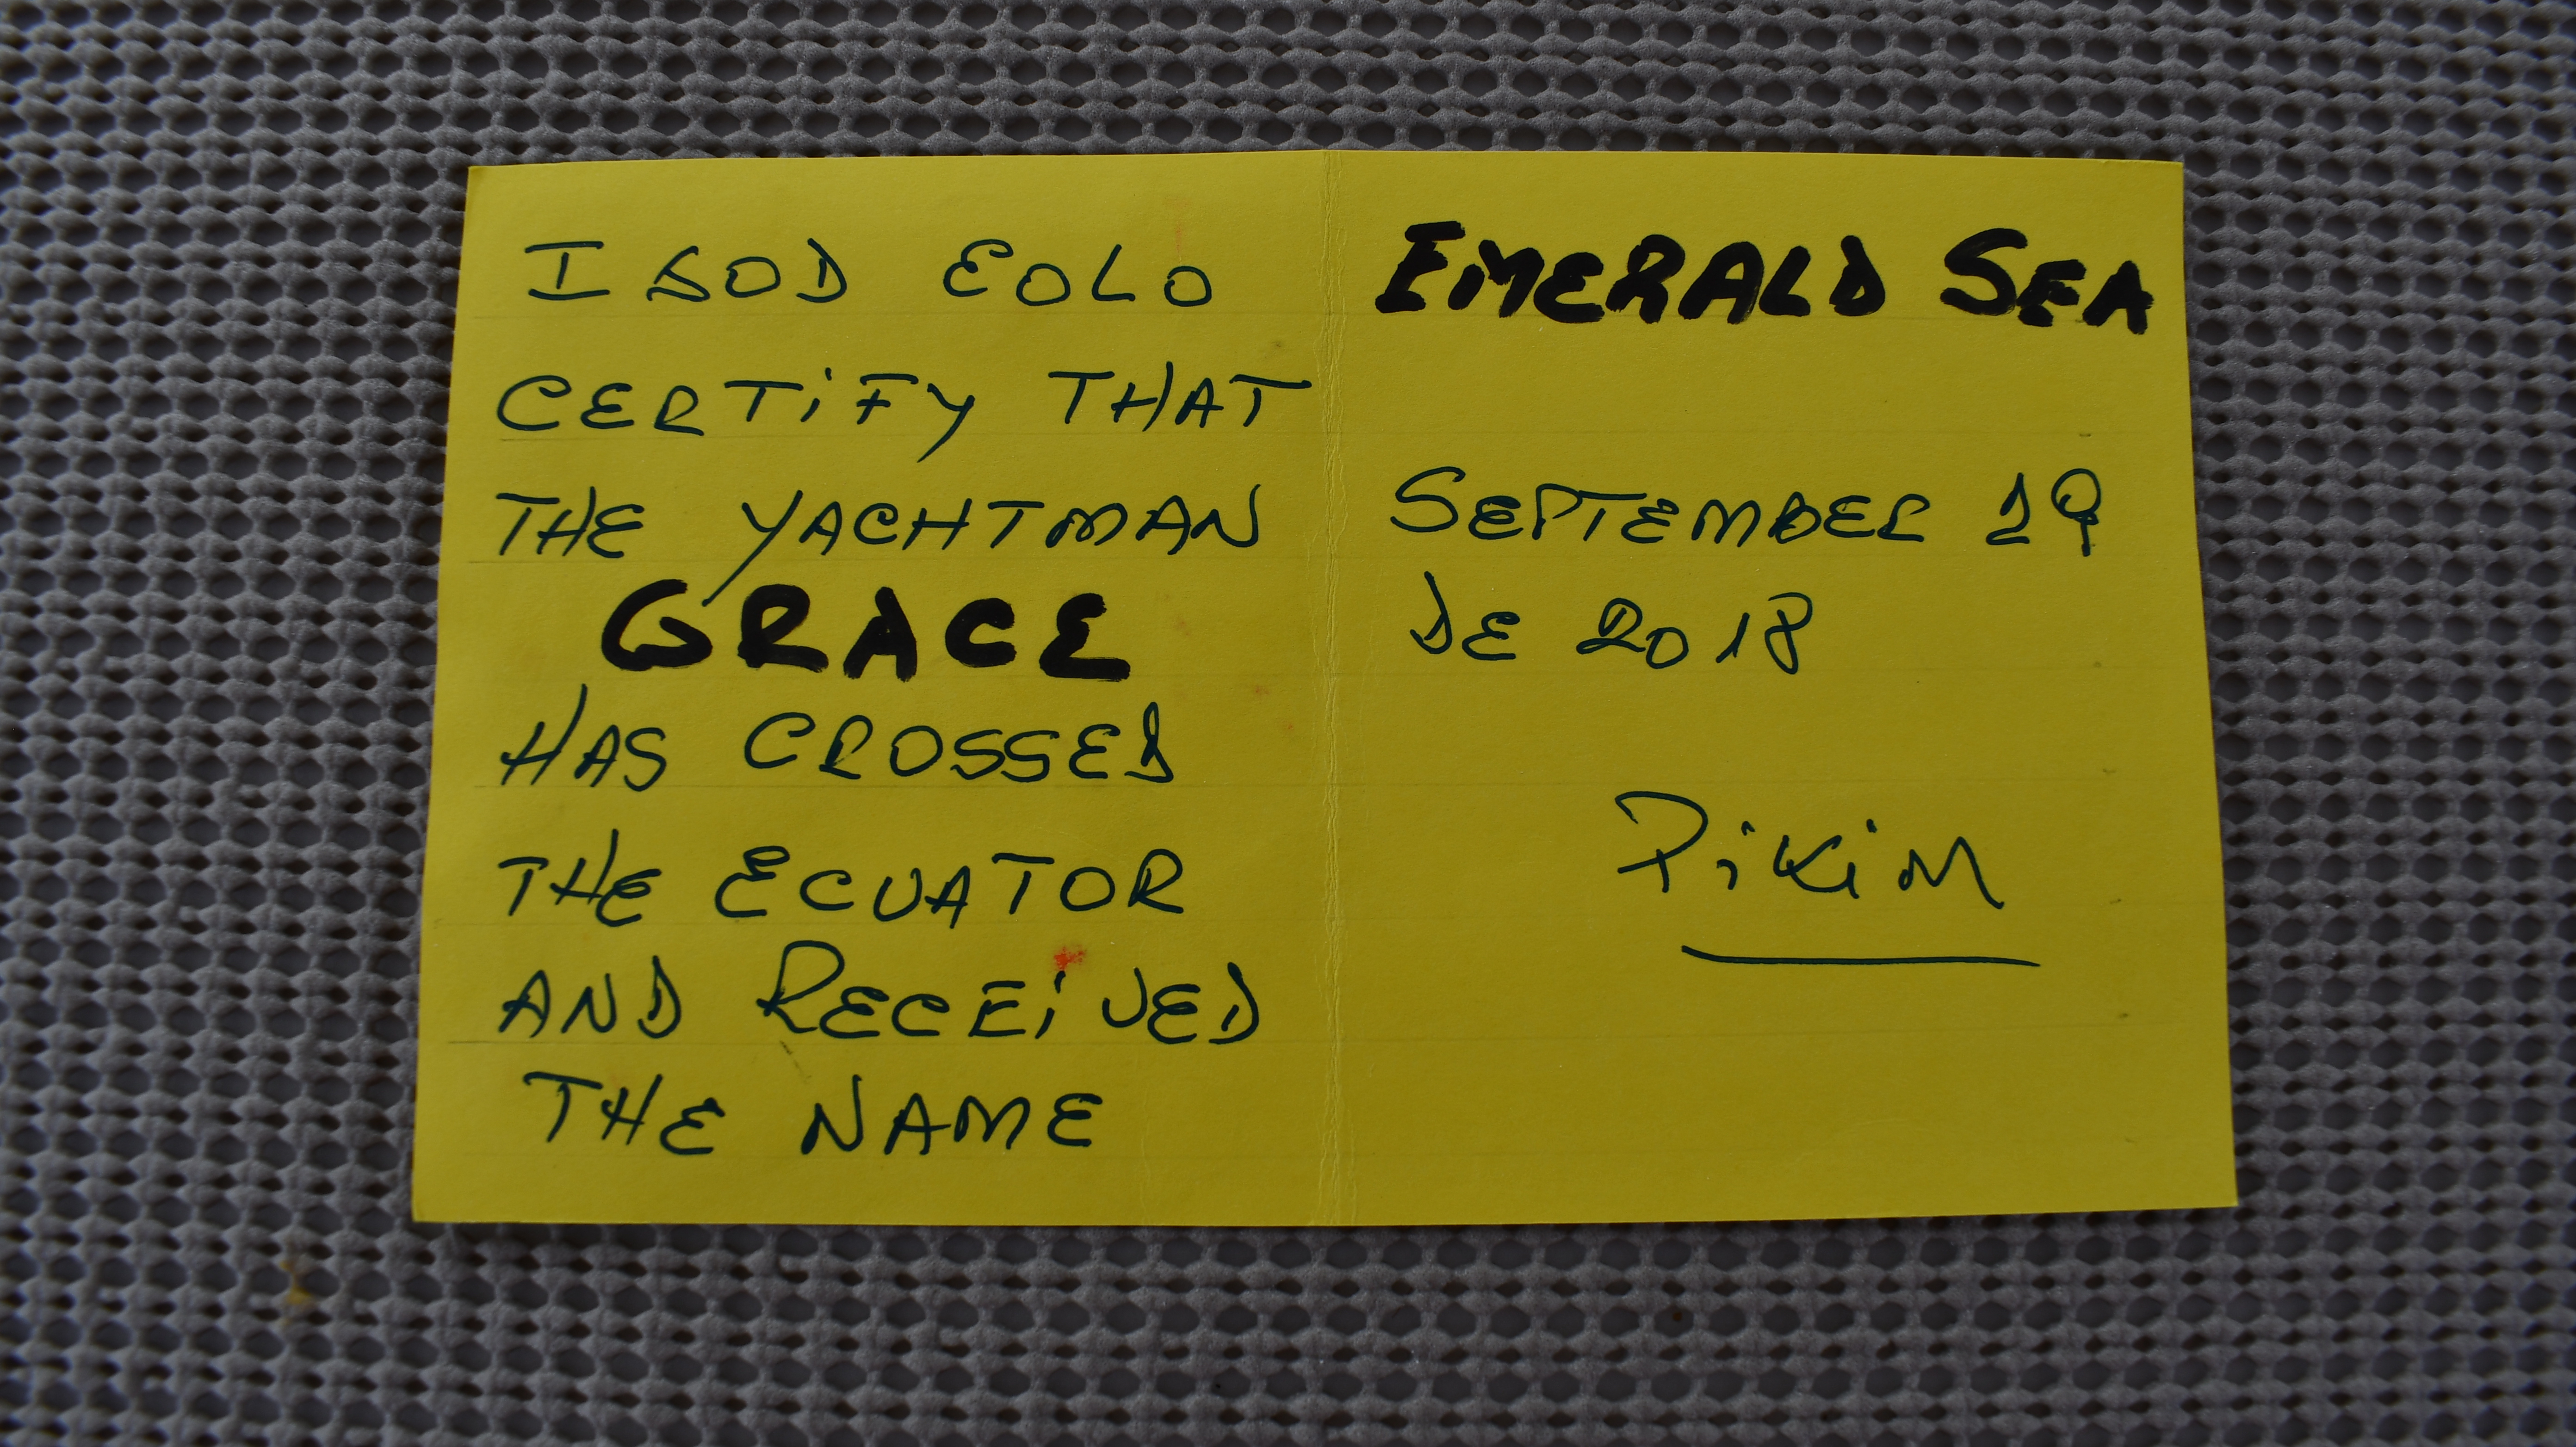 I GOD EOLO
CERTiFY THAT
THE YACHTMAN
GRACE
HAS CROSSED
THE ECUATOR
AND RECEiVED
THE NAME
EMERALD SEA
SEPTEMBER 19
DE 2018
PiKiM